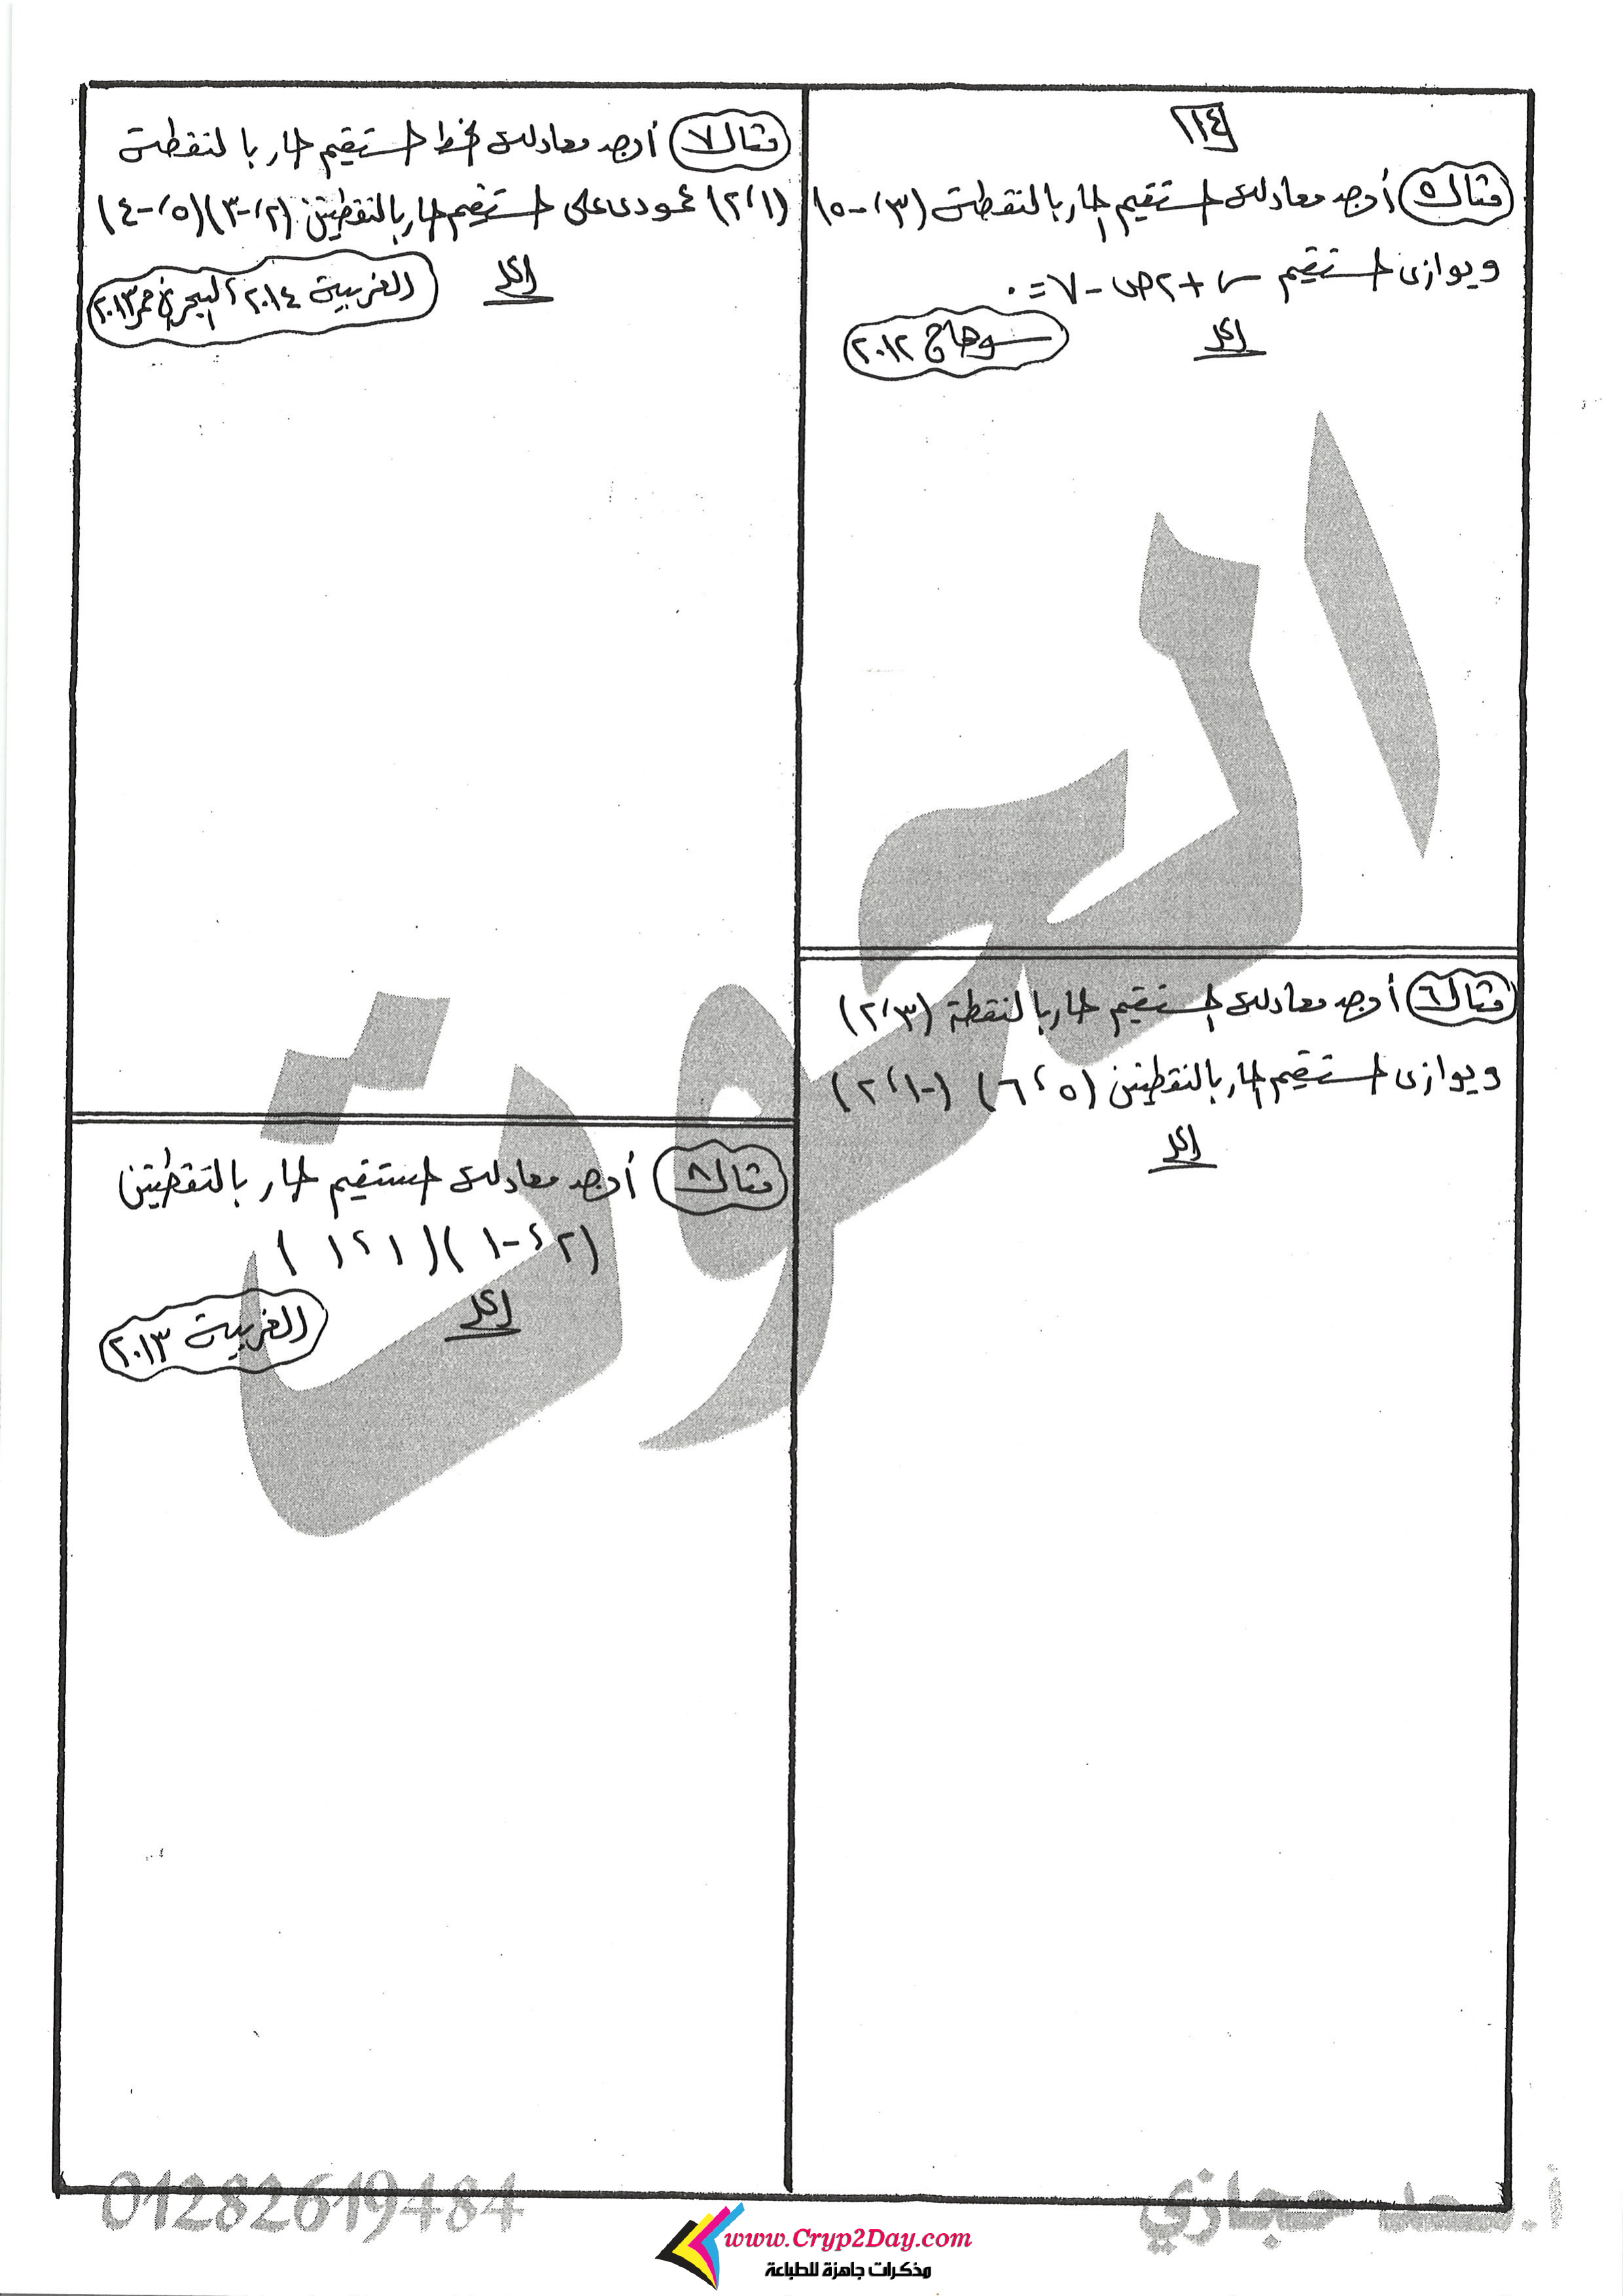 ١١٤
مثال ٥ أوجد معادلة المستقيم المار بالنقطة (٣، -٥)
ويوازى المستقيم س + ٢ص - ٧ = ٠
الحل
سوهاج ٢٠١٢
مثال ٦ أوجد معادلة المستقيم المار بالنقطة (٣، ٢)
ويوازى المستقيم المار بالنقطتين (٥، ٦) (-١، ٢)
الحل
مثال ٧ أوجد معادلة الخط المستقيم المار بالنقطة
(١، ٢) عمودى على المستقيم المار بالنقطتين (٢، -٣) (٥، -٤)
الحل
الغربية ٢٠١٤، البحر الأحمر ٢٠١٣
مثال ٨ أوجد معادلة المستقيم المار بالنقطتين
(٢، -١) (١، ١)
الحل
الغربية ٢٠١٣
الحوت
أ. سعد حجازي
01282619484
www.Cryp2Day.com
مذكرات جاهزة للطباعة